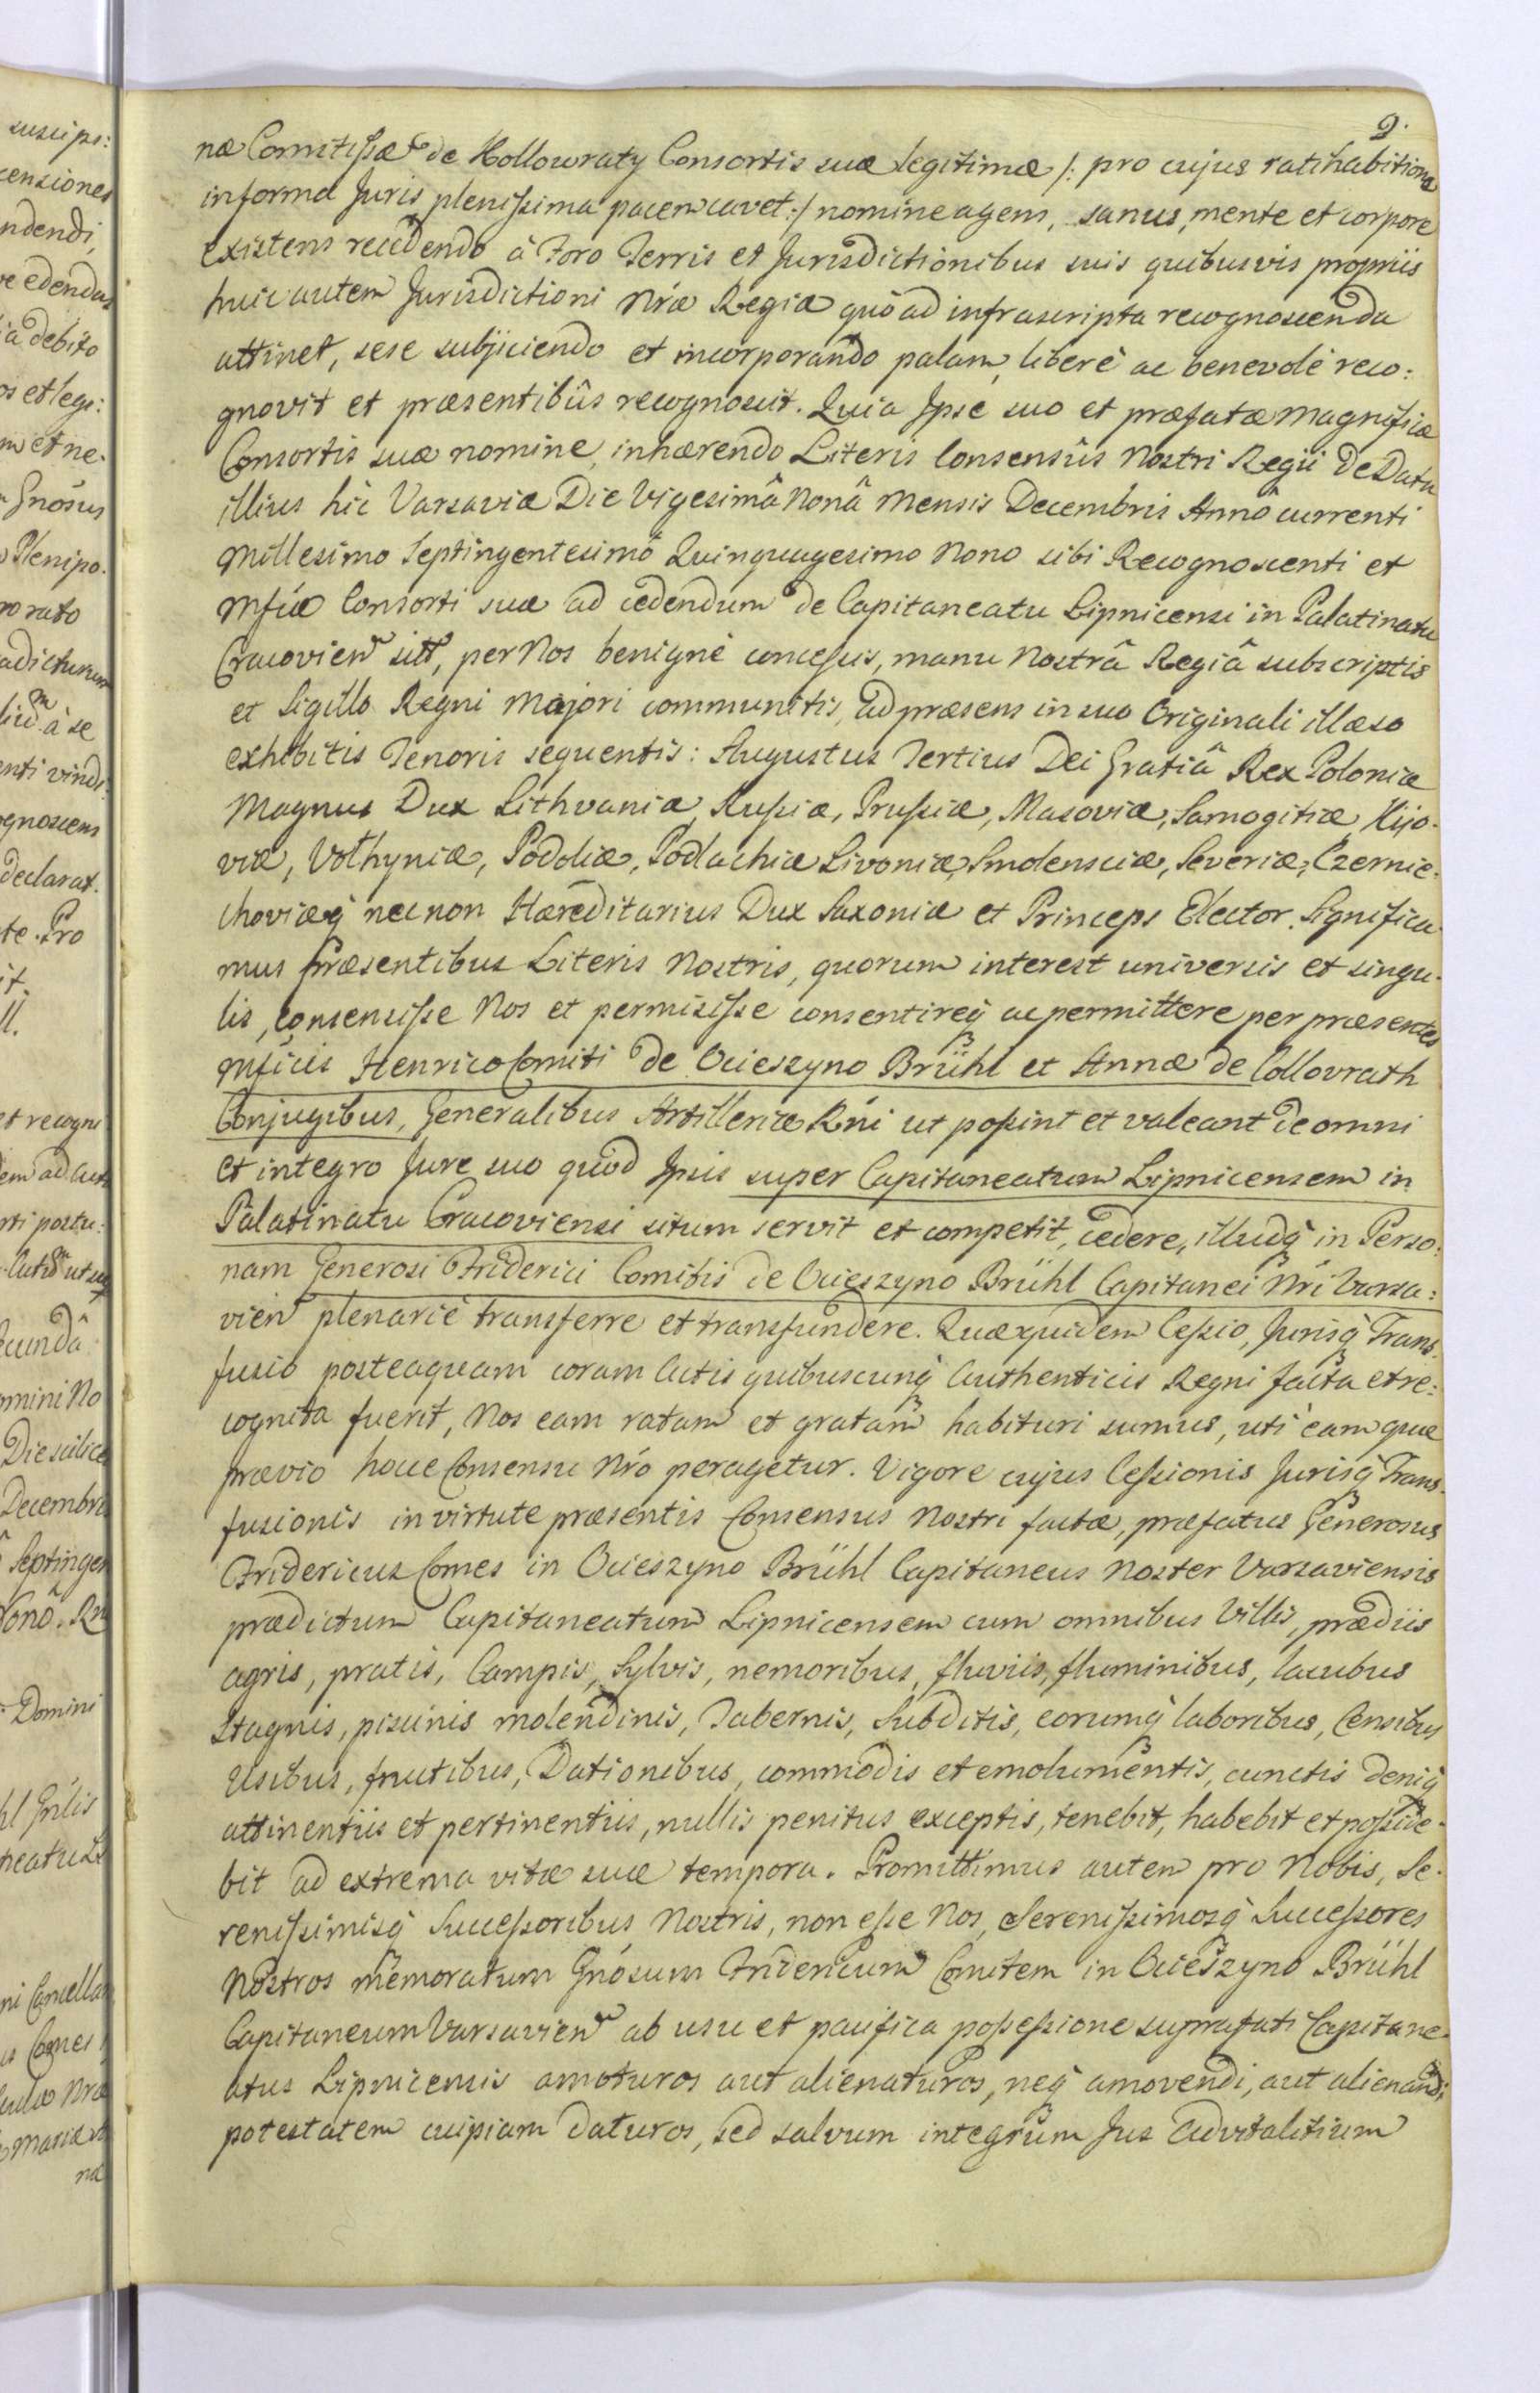 9.
næ Comitissæ de Kollowraty Consortis suæ legitimæ /: pro cujus ratihabitione
in forma Juris plenissima pacem cavet :/ nomine agens, sanus, mente et corpore
existens recedendo à Foro Terris et Jurisdictionibus suis quibusvis propriis
huic autem Jurisdictioni Nræ Regiæ quò ad infrascripta recognoscenda
attinet, sese subjiciendo et incorporando palam, liberè ac benevolè reco:
gnovit et præsentibùs recognoscit. Quia Ipse suo et præfatæ Magnificæ
Consortis suæ nomine, inhærendo Literis Consensûs Nostri Regii de Data
illius hìc Varsaviæ Die Vigesimâ Nonâ Mensis Decembris Annô currenti
Millesimo Septingentesimô Quinquagesimo Nono sibi Recognoscenti et
Mficæ Consorti suæ ad cedendum de Capitaneatu Lipnicensi in Palatinatu
Cracovien sitô, per Nos benignè concessis, manu Nostrâ Regiâ subscriptis
et Sigillo Regni Majori communitis, ad præsens in suo Originali illæso
exhibitis Tenoris sequentis: Augustus Tertius Dei Gratiâ Rex Poloniæ
Magnus Dux Lithvaniæ, Russiæ, Prussiæ, Masoviæ, Samogitiæ, Kijo-
viæ, Volhyniæ, Podoliæ, Podlachiæ Livoniæ, Smolensciæ, Severiæ, Czernie-
choviæq necnon Hæreditarius Dux Saxoniæ et Princeps Elector. Significa-
mus Præsentibus Literis Nostris, quorum interest universis et singu-
lis, consensisse Nos et permisisse consentireq ac permittere per præsentes
Mficis Henrico Comiti de Ocieszyno Brühl et Annæ de Collovrath
Conjugibus, Generalibus Artilleriæ Rni ut possint et valeant de omni
et integro Jure suo quod Ipsis super Capitaneatum Lipnicensem in
Palatinatu Cracoviensi situm servit et competit, cedere, illudq in Perso:
nam Generosi Friderici Comitis de Ocieszyno Brühl Capitanei Nri Varsa:
vien plenariè transferre et transfundere. Quæquidem Cessio, Jurisq Trans-
fusio posteaquam coram Actis quibuscunq Authenticis Regni facta et re:
cognita fuerit, Nos eam ratam et gratam habituri sumus, uti eam quæ
prævio hocce Consensu Nro peragetur. Vigore cujus Cessionis Jurisq Trans-
fusionis in virtute præsentis Consensus Nostri factæ, præfatus Generosus
Fridericus Comes in Ocieszyno Brühl Capitaneus Noster Varsaviensis
prædictum Capitaneatum Lipnicensem cum omnibus Villis, prædiis
agris, pratis, Campis, Sylvis, nemoribus, fluviis, fluminibus, lacubus
Stagnis, piscinis molendinis, Tabernis, Subditis, eorumq laboribus, Censibus
Usibus, fructibus, Dationibus, commodis et emolumentis, cunctis deniq
attinentiis et pertinentiis, nullis penitus exceptis, tenebit, habebit et posside-
bit ad extrema vitæ suæ tempora. Promittimus autem pro Nobis, Se-
renissimisq Successoribus Nostris, non esse Nos, Serenissimosq Successores
Nostros memoratum Gnosum Fridericum Comitem in Ocieszyno Brühl
Capitaneum Varsavien ab usu et pacifica possessione suprafati Capitane-
atus Lipnicensis amoturos aut alienaturos, neq amovendi, aut alienandi
potestatem cuipiam daturos, sed salvum integrum Jus Advitalitium